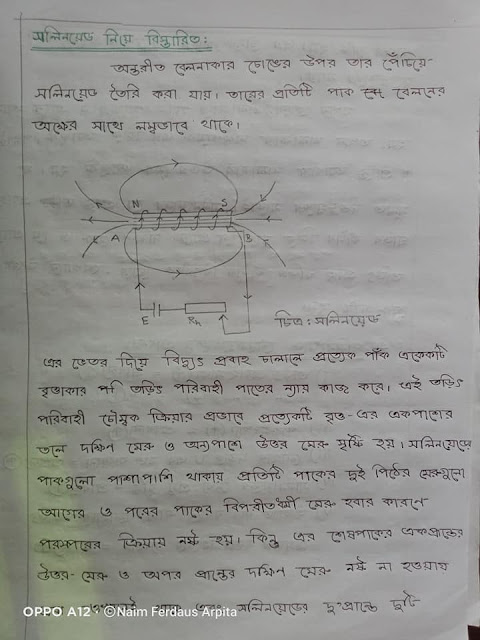 সলিনয়েড নিয়ে বিস্তারিত:
অন্তরীত বেলনাকার চোঙের উপর তার পেঁচিয়ে
সলিনয়েড তৈরি করা যায়। তারের প্রতিটি পাক বেলনের
অক্ষের সাথে লম্বভাবে থাকে।
N S
A B
E Rh
চিত্র: সলিনয়েড
এর ভেতর দিয়ে বিদ্যুৎ প্রবাহ চালালে প্রত্যেক পাঁক একেকটি
বৃত্তাকার তড়িৎ পরিবাহী পাতের ন্যায় কাজ করে। এই তড়িৎ
পরিবাহী চৌম্বক ক্রিয়ার প্রভাবে প্রত্যেকটি বৃত্ত-এর একপাশের
তলে দক্ষিণ মেরু ও অন্যপাশে উত্তর মেরু সৃষ্টি হয়। সলিনয়েডের
পাকগুলো পাশাপাশি থাকায় প্রতিটি পাকের দুই পিঠের মেরুগুলো
আগের ও পরের পাকের বিপরীতধর্মী মেরু হবার কারণে
পরস্পরের ক্রিয়ায় নষ্ট হয়। কিন্তু এর শেষপাকের একপ্রান্তের
উত্তর-মেরু ও অপর প্রান্তের দক্ষিণ মেরু নষ্ট না হওয়ায়
সলিনয়েডের দু'প্রান্তে দুটি
OPPO A12 ©Naim Ferdaus Arpita